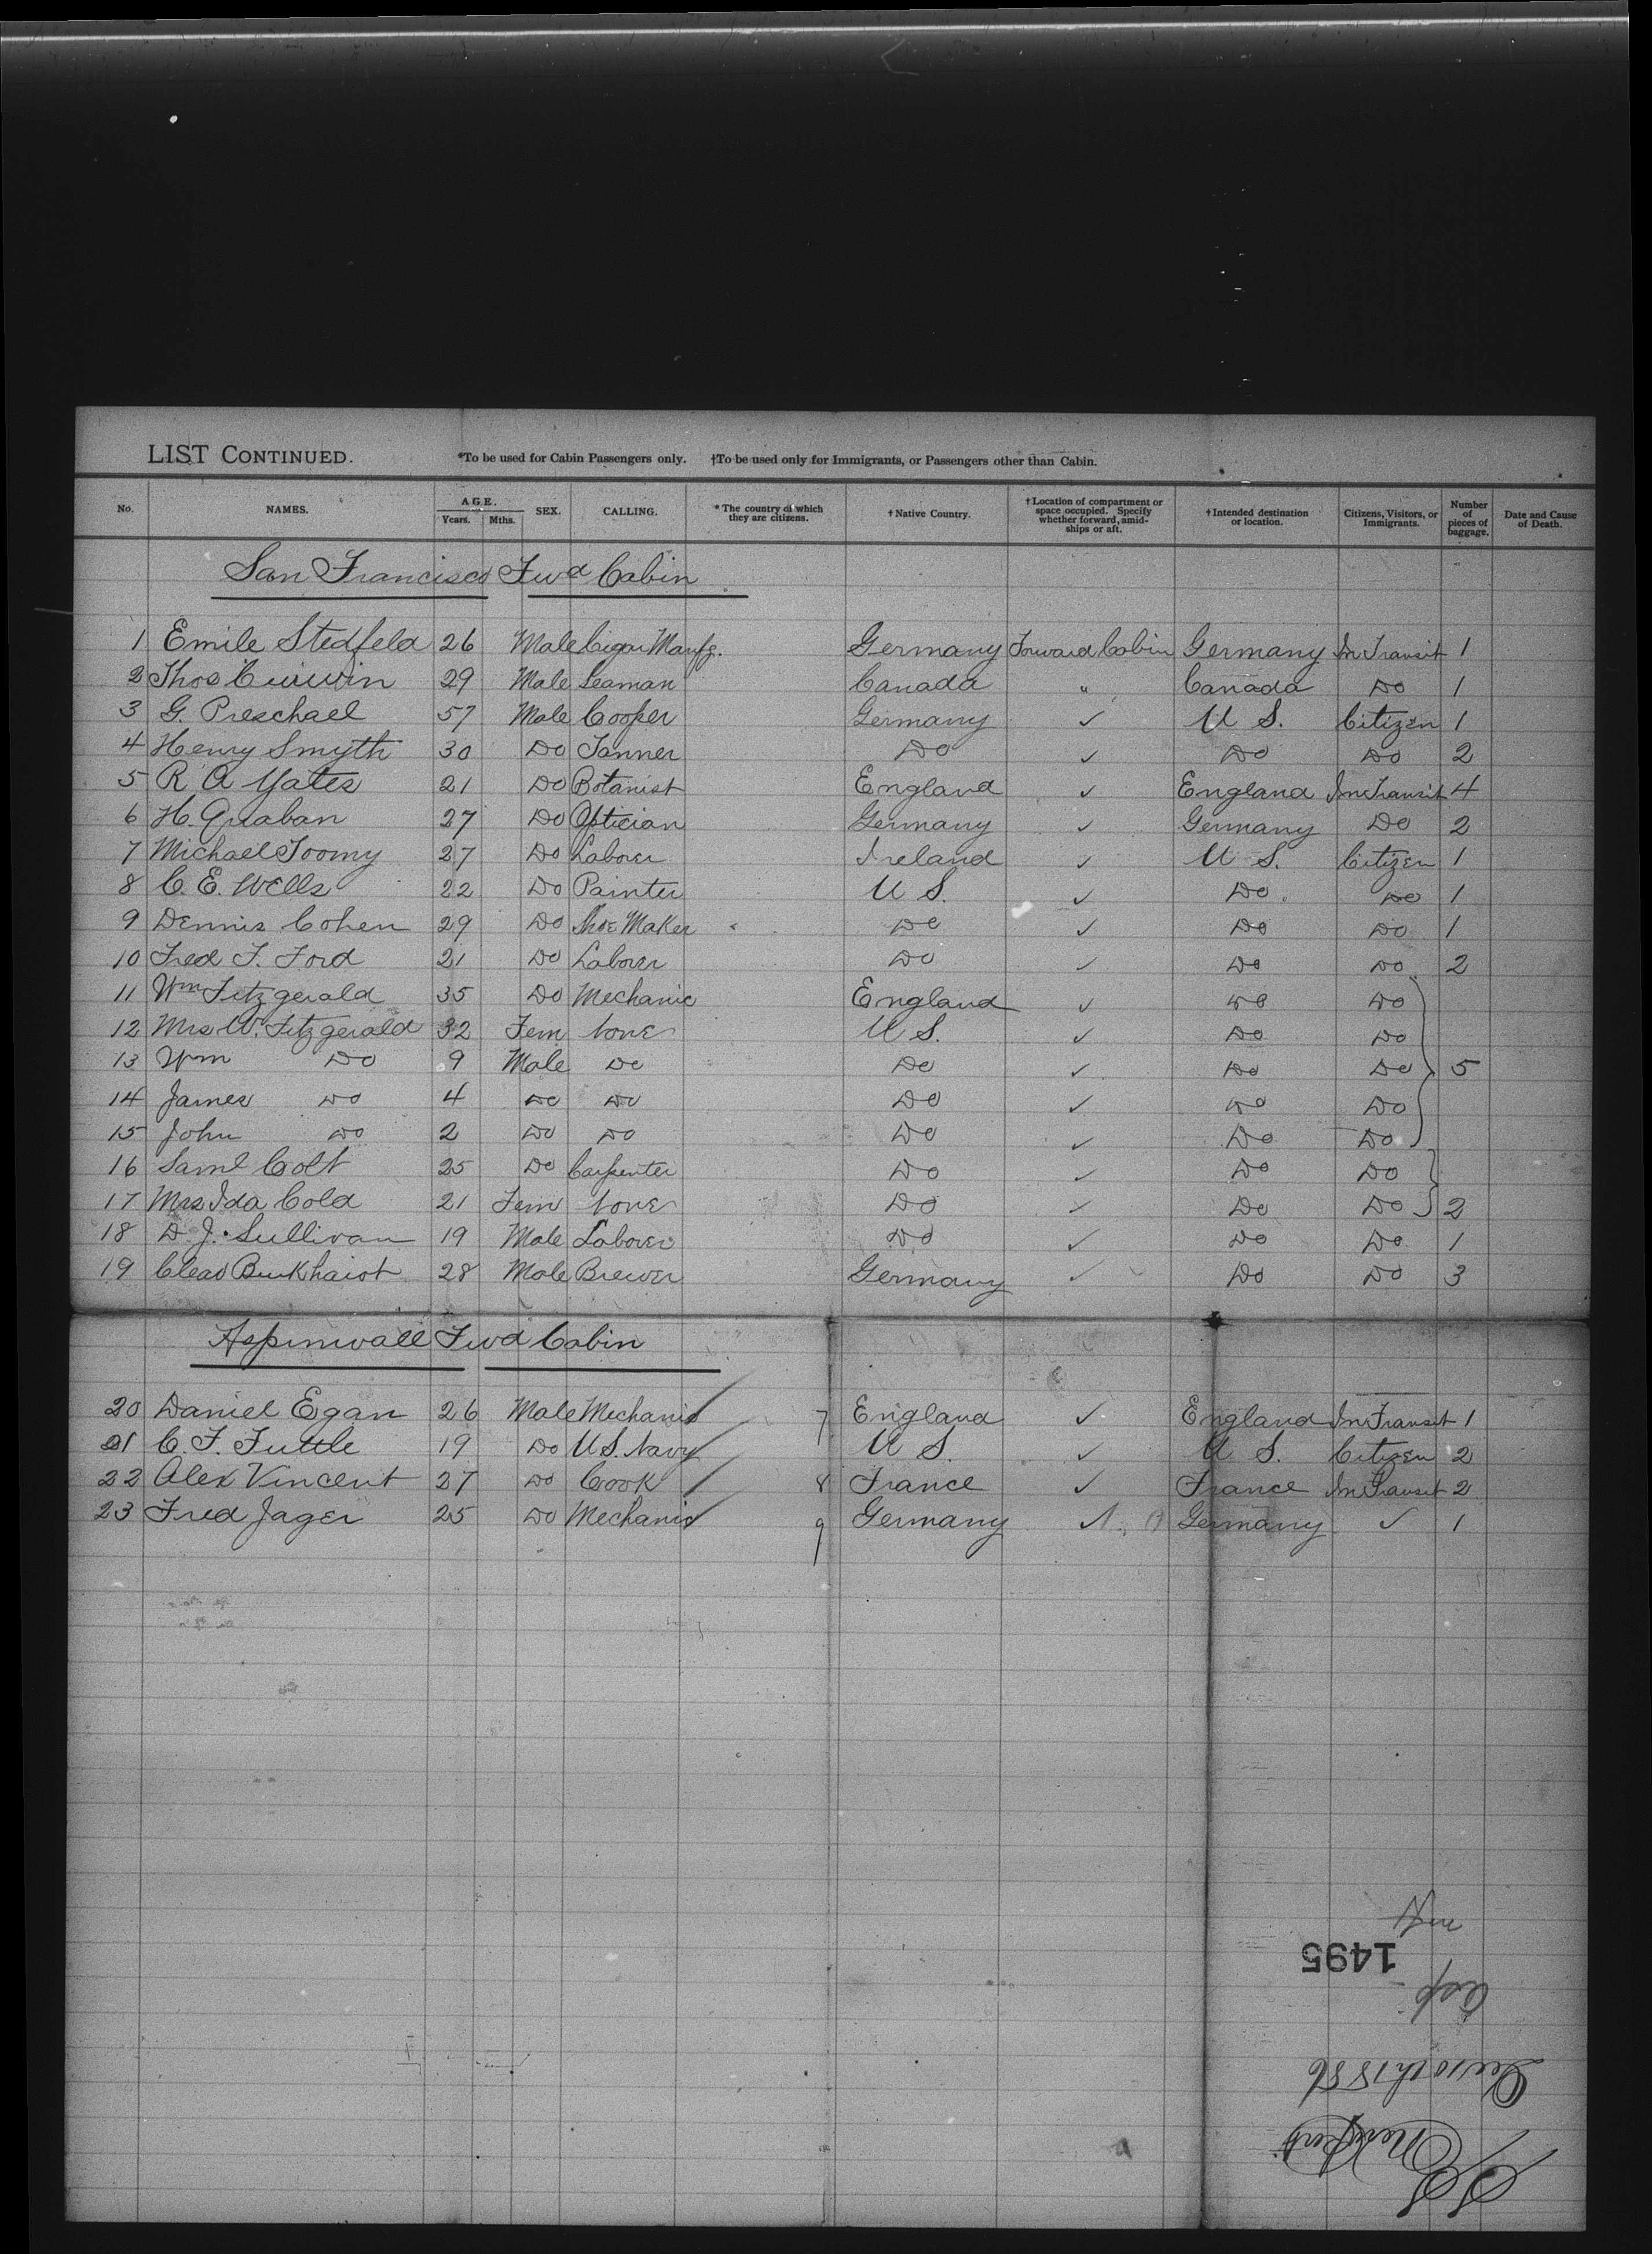 LIST CONTINUED. *To be used for Cabin Passengers only. †To be used only for Immigrants, or Passengers other than Cabin.
No. NAMES. AGE. Years. Mths. SEX. CALLING. *The country of which they are citizens. †Native Country. †Location of compartment or space occupied. Specify whether forward, amidships or aft. †Intended destination or location. Citizens, Visitors, or Immigrants. Number of pieces of baggage. Date and Cause of Death.
San Francisco Fwd Cabin
1 Emile Stedfeld 26 Male Cigar Manfg. Germany Forward Cabin Germany In Transit 1
2 Thos 29 Male Seaman Canada " Canada Do 1
3 G. Preschael 57 Male Cooper Germany ✓ U S. Citizen 1
4 Henry Smyth 30 Do Tanner Do ✓ Do Do 2
5 R A Yates 21 Do Botanist England ✓ England In Transit 4
6 H. Graban 27 Do Optician Germany ✓ Germany Do 2
7 Michael Toomy 27 Do Laborer Ireland ✓ U S. Citizen 1
8 C. E. Wells 22 Do Painter U S. ✓ Do Do 1
9 Dennis Cohen 29 Do Shoe Maker Do ✓ Do Do 1
10 Fred T. Ford 21 Do Laborer Do ✓ Do Do 2
11 Wm Fitzgerald 35 Do Mechanic England ✓ Do Do
12 Mrs W. Fitzgerald 32 Fem None U S. ✓ Do Do
13 Wm Do 9 Male Do Do ✓ Do Do 5
14 James Do 4 Do Do Do ✓ Do Do
15 John Do 2 Do Do Do ✓ Do Do
16 Saml Colt 25 Do Carpenter Do ✓ Do Do
17 Mrs Ida Cold 21 Fem None Do ✓ Do Do 2
18 D. J. Sullivan 19 Male Laborer Do ✓ Do Do 1
19 28 Male Brewer Germany ✓ Do Do 3
Aspinwall Fwd Cabin
20 Daniel Egan 26 Male Mechanic 7 England ✓ England In Transit 1
21 C. F. Tuttle 19 Do U S. Navy U S. ✓ U S. Citizen 2
22 Alex Vincent 27 Do Cook 8 France ✓ France In Transit 2
23 Fred Jager 25 Do Mechanic 9 Germany ✓ Germany ✓ 1
1495
Asp
Dec 10th 1886